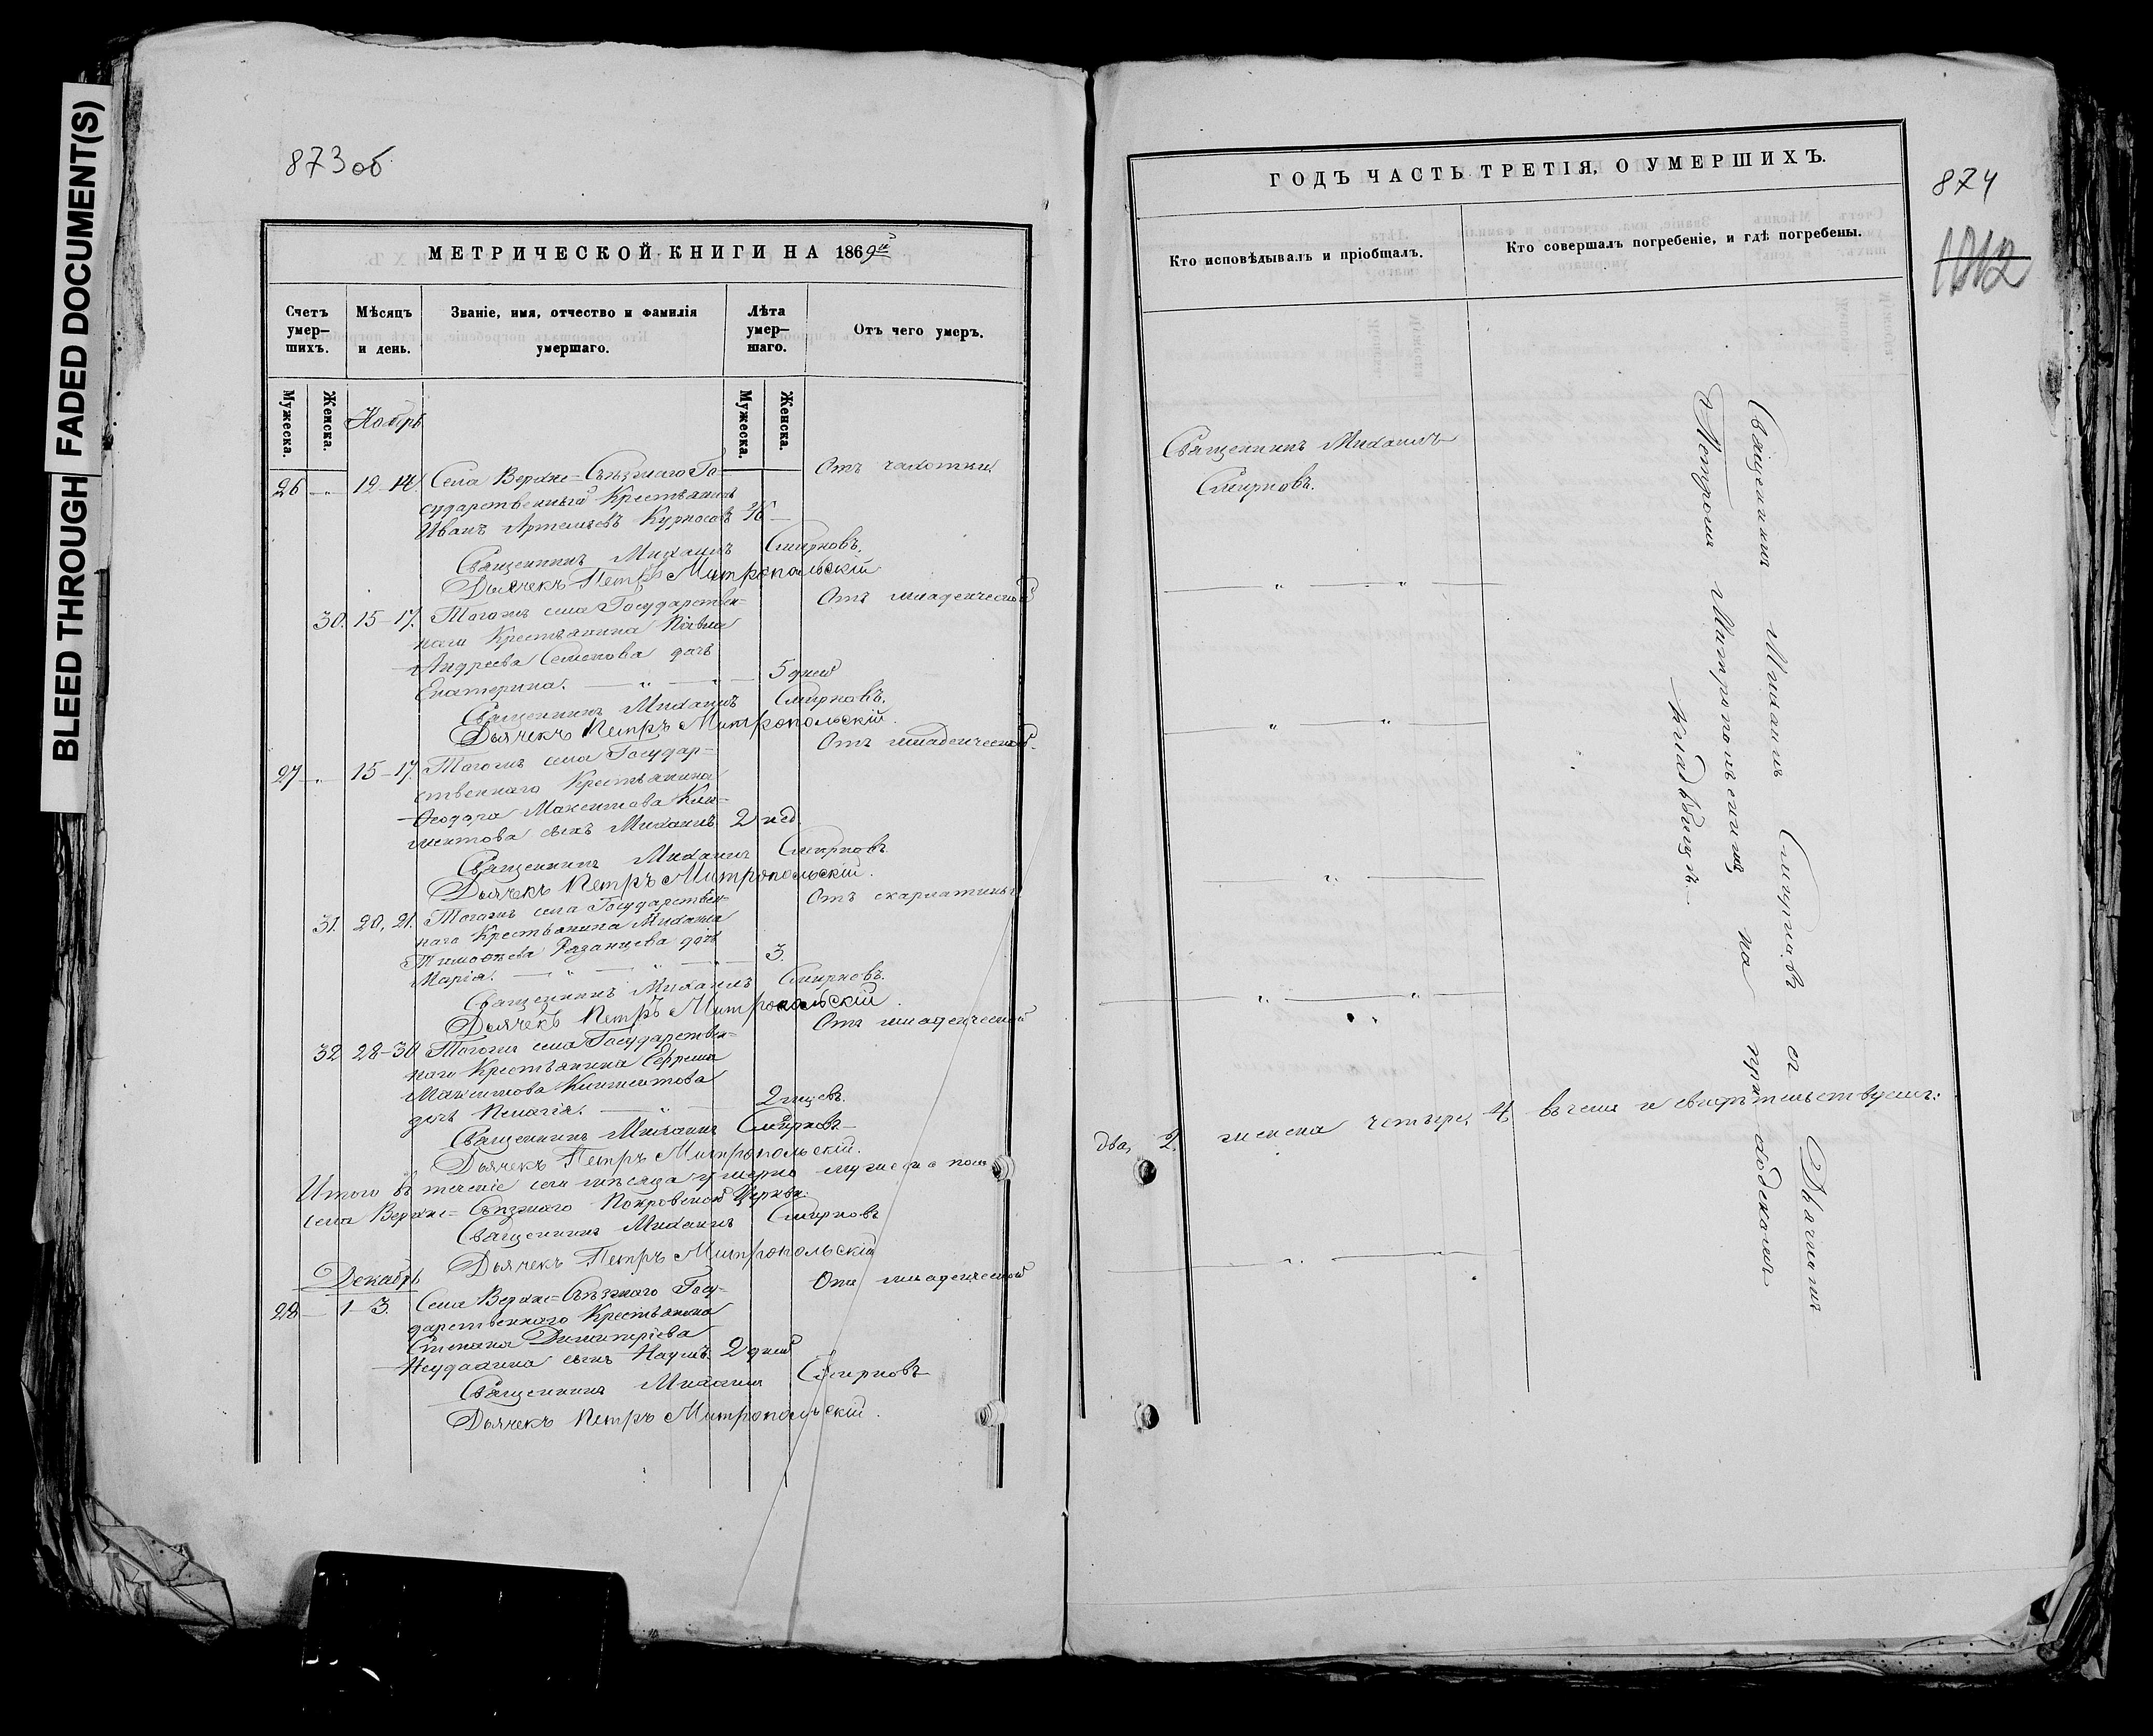 BLEED THROUGH
FADED DOCUMENT(S)
873 об
МЕТРИЧЕСКОЙ КНИГИ НА 1869й
Счетъ умер-
шихъ.
Мѣсяцъ
и день.
Званіе, имя, отчество и фамилія
умершаго.
Лѣта
умер-
шаго.
Отъ чего умеръ.
Мужеска.
Женска.
Мужеска.
Женска.
Ноябрь
26 — „ 12-14. Села Верхне=Съѣзжаго Го- Отъ чахотки
сударственный Крестьянинъ
Иванъ Артемьевъ Курносовъ
Священникъ Михаилъ Смирновъ.
Дьячекъ Петръ Митропольскій
30. 15-17. Тогожъ села Государствен= Отъ младенческой
наго Крестьянина Павла
Андреева Семенова дочь
Екатерина. — „ — „ — 5 дней
Священникъ Михаилъ Смирновъ.
Дьячекъ Петръ Митропольскій.
27 — „ 15-17. Тогожъ села Государ= Отъ младенческой.
ственнаго Крестьянина
Ѳеодора Максимова Кли=
ментова сынъ Михаилъ. 2 нед.
Священникъ Михаилъ Смирновъ.
Дьячекъ Петръ Митропольскій.
31. 20, 21. Тогожъ села Государствен= Отъ скарлатины
наго Крестьянина Михаила
Тимоѳеева Рязанцева дочь
Марія. — „ — „ — „ — 3.
Священникъ Михаилъ Смирновъ.
Дьячекъ Петръ Митропольскій.
32 28-30 Тогожъ села Государствен= Отъ младенческой
наго Крестьянина Ефрема
Максимова Климентова
дочь Пелагія. — „ — 2 мцсвъ.
Священникъ Михаилъ Смирновъ
Дьячекъ Петръ Митропольскій.
Итого въ теченіе сего мѣсяца умерло мужеска пола
села Верхне=Съѣзжаго Покровской Церкви:
Священникъ Михаилъ Смирновъ
Дьячекъ Петръ Митропольскій
Декабрь
28 — 1-3. Села Верхне=Съѣзжаго Госу= Отъ младенческой
дарственнаго Крестьянина
Степана Димитріева
Неудахина сынъ Наумъ. 2 дней
Священникъ Михаилъ Смирновъ
Дьячекъ Петръ Митропольскій.
ГОДЪ ЧАСТЬ ТРЕТІЯ, О УМЕРШИХЪ.
874
1012
Кто исповѣдывалъ и пріобщалъ.
Кто совершалъ погребеніе, и гдѣ погребены.
Священникъ Михаилъ
Смирновъ.
Священникъ Михаилъ Смирновъ съ Дьячкомъ
Петромъ Митропольскимъ на приходскомъ
кладбищѣ.
два, 2, женска четыре, 4, въ чемъ и свидѣтельствуемъ: